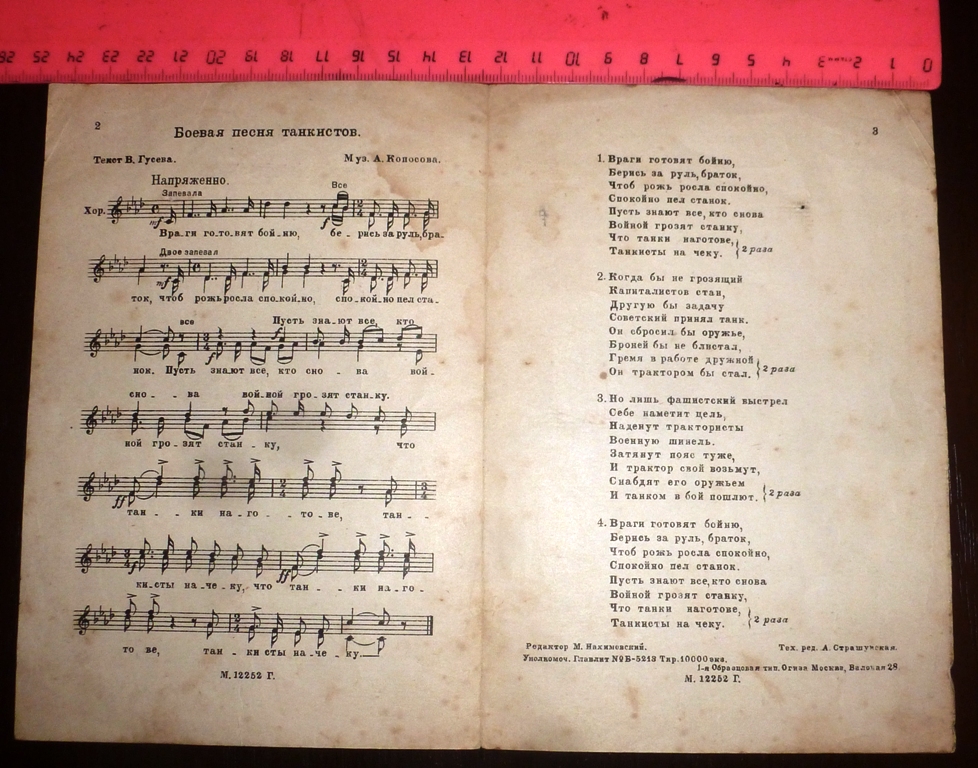 2
Боевая песня танкистов.
Текст В. Гусева.
Муз. А. Копосова.
Напряженно.
Запевала
Все
Хор.
mf
f
Вра-ги го-то-вят бой-ню, бе - рись за руль, бра-
Двое запевал
mf
ток, чтоб рожь росла спо-кой-но, спо-кой-но пел ста-
все
Пусть зна-ют все, кто
f
f
нок. Пусть знают все, кто сно - ва вой-
сно - ва вой-ной гро-зят стан-ку.
ной гро-зят стан - ку, что
ff
тан - - ки на-го - то-ве, тан - -
f
ff
ки-сты на-че-ку, что тан - - ки на-го-
то ве, тан - ки сты на-че - ку.
М. 12252 Г.
3
1. Враги готовят бойню,
Берись за руль, браток,
Чтоб рожь росла спокойно,
Спокойно пел станок.
Пусть знают все, кто снова
Войной грозят станку,
Что танки наготове,
Танкисты на чеку. 2 раза
2. Когда бы не грозящий
Капиталистов стан,
Другую бы задачу
Советский принял танк.
Он сбросил бы оружье,
Броней бы не блистал,
Гремя в работе дружной
Он трактором бы стал. 2 раза
3. Но лишь фашистский выстрел
Себе наметит цель,
Наденут трактористы
Военную шинель.
Затянут пояс туже,
И трактор свой возьмут,
Снабдят его оружьем
И танком в бой пошлют. 2 раза
4. Враги готовят бойню,
Берись за руль, браток,
Чтоб рожь росла спокойно,
Спокойно пел станок.
Пусть знают все, кто снова
Войной грозят станку,
Что танки наготове,
Танкисты на чеку. 2 раза
Редактор М. Нахимовский.
Тех. ред. А. Страшунская.
Уполномоч. Главлит № Б-5213 Тир. 10000 экз.
1-я Образцовая тип. Огиза Москва, Валовая 28
М. 12252 Г.